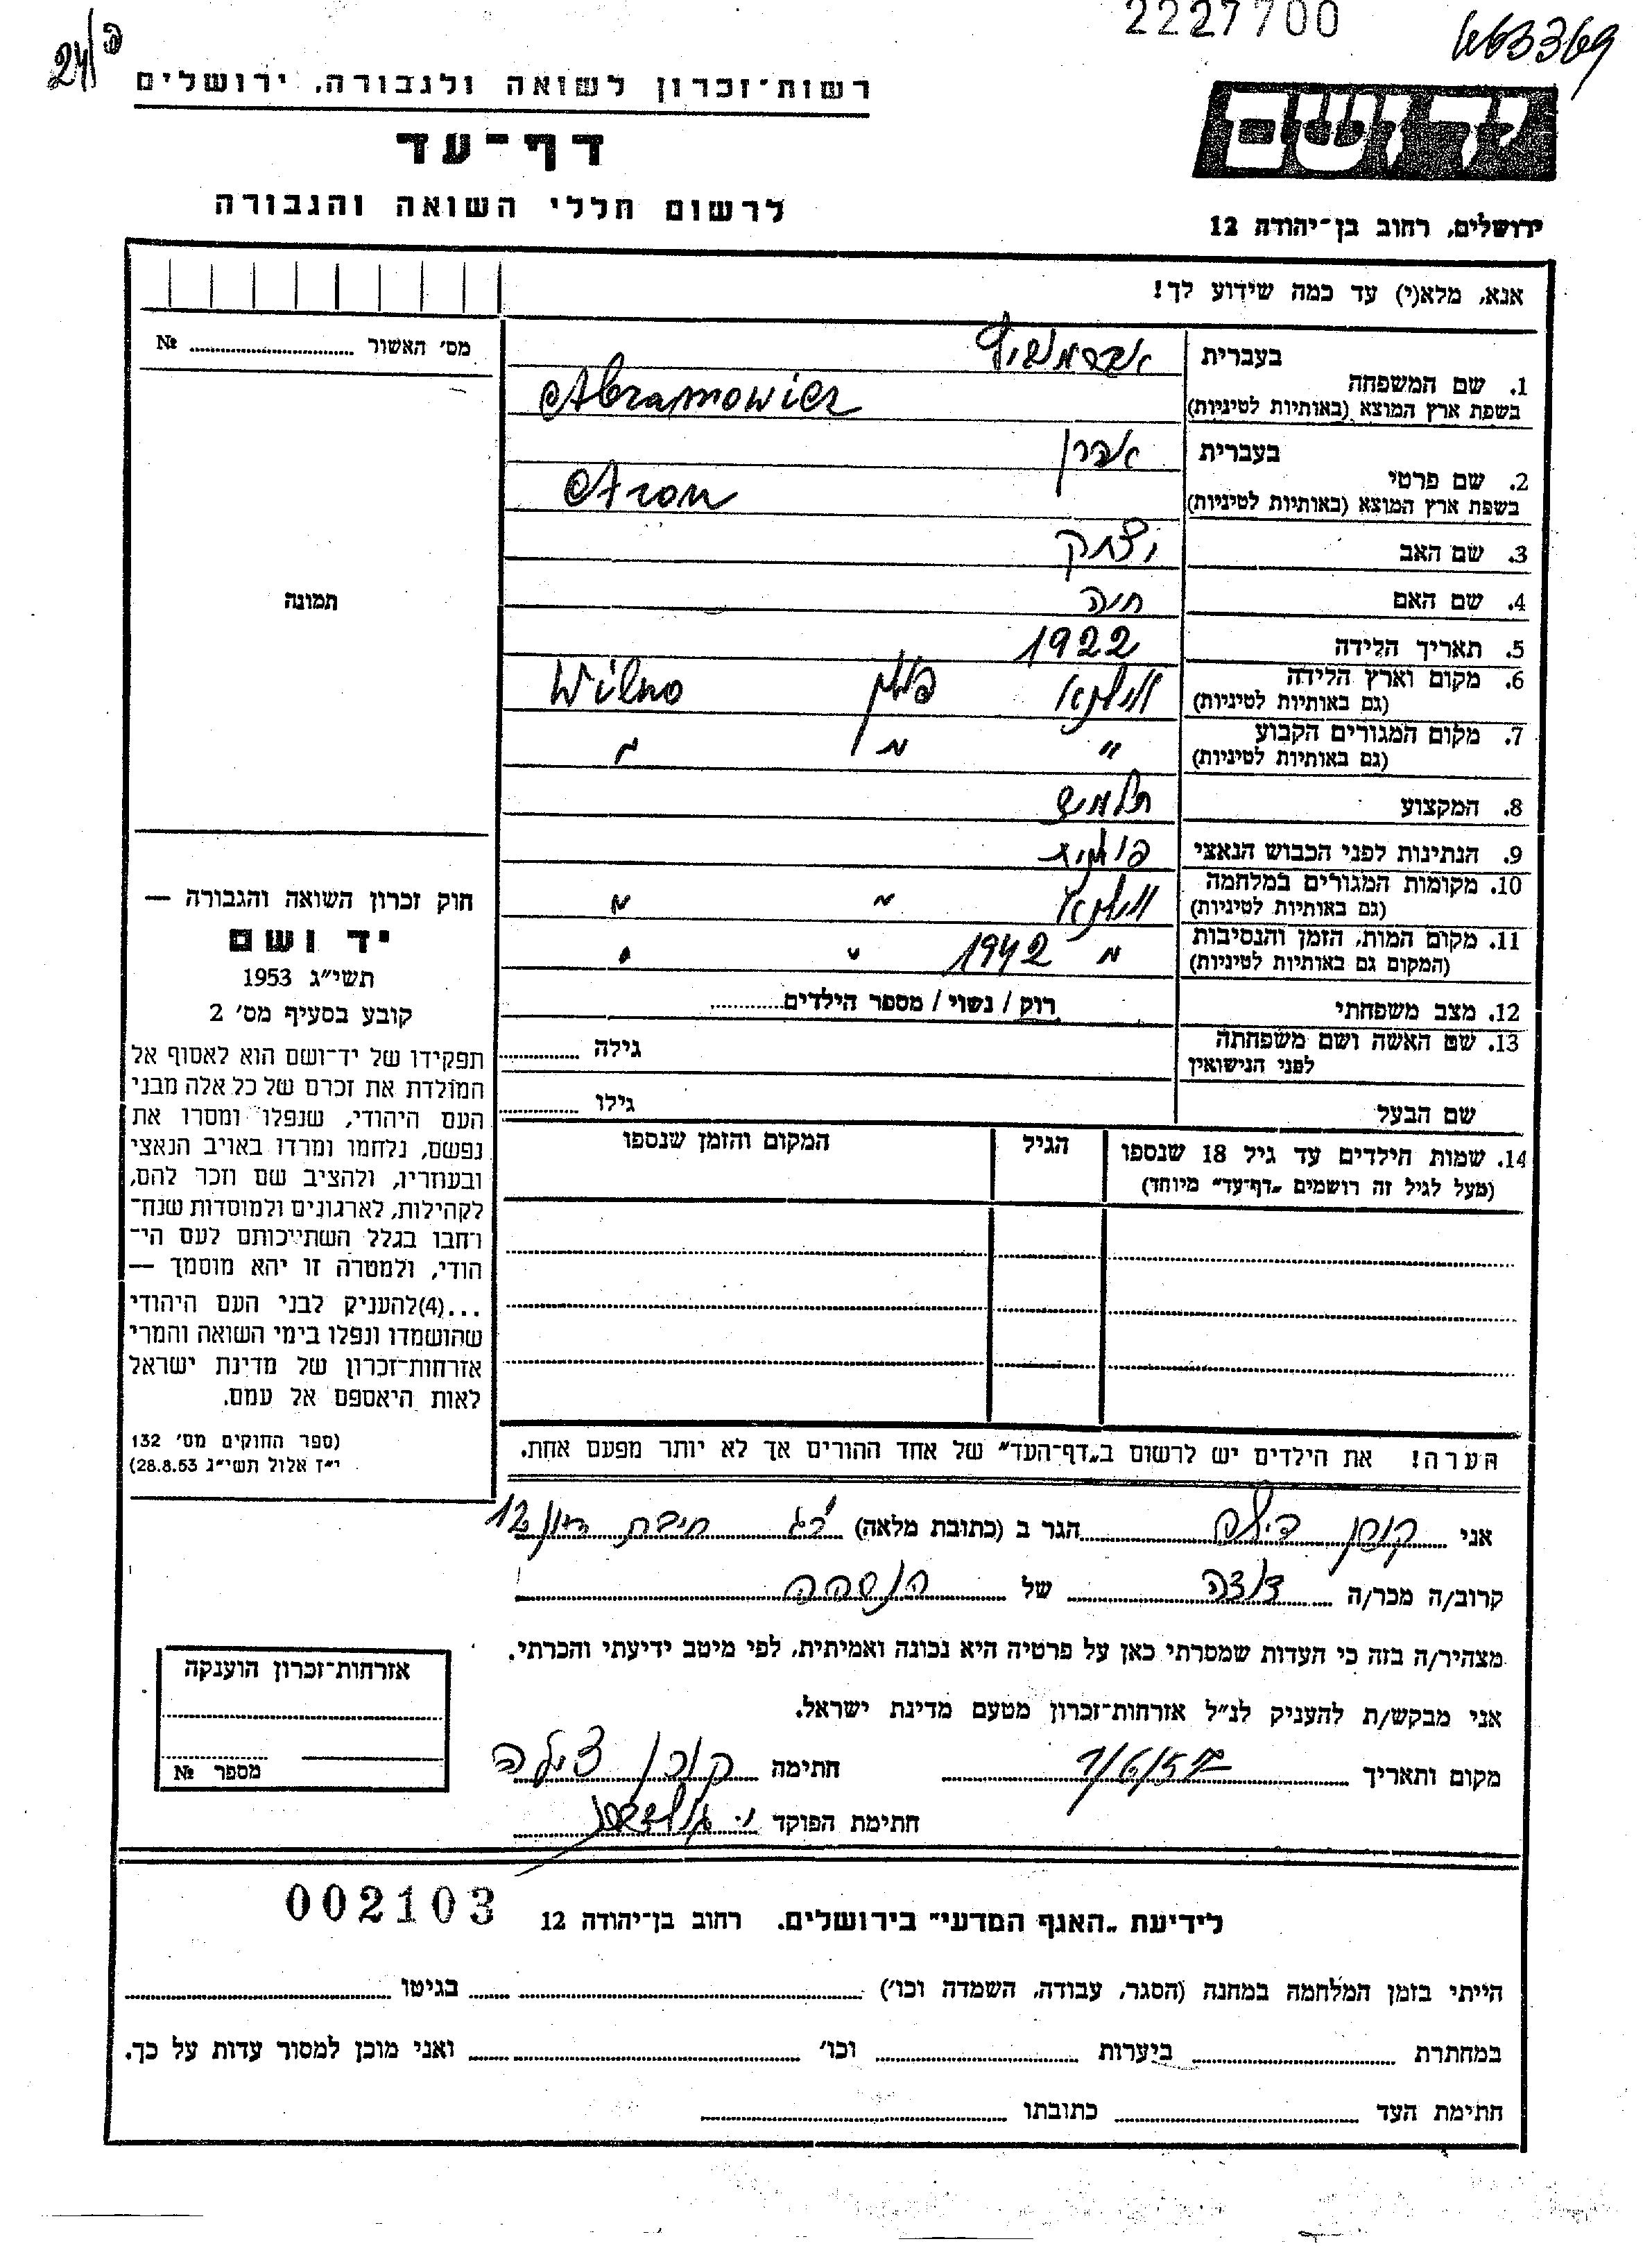 2227700
463369
24/פ
רשות־זכרון לשואה ולגבורה, ירושלים
דף־עד
לרשום חללי השואה והגבורה
יד ושם
ירושלים, רחוב בן־יהודה 12
אנא, מלא(י) עד כמה שידוע לך!
מס׳ האשור № ........
תמונה
1. שם המשפחה
בעברית אברמוביץ
בשפת ארץ המוצא (באותיות לטיניות) Abramowicz
2. שם פרטי
בעברית אהרן
בשפת ארץ המוצא (באותיות לטיניות) Aron
3. שם האב יצחק
4. שם האם חיה
5. תאריך הלידה 1922
6. מקום וארץ הלידה וילנא פולין Wilno
(גם באותיות לטיניות)
7. מקום המגורים הקבוע " " "
(גם באותיות לטיניות)
8. המקצוע תלמיד
9. הנתינות לפני הכבוש הנאצי פולנית
10. מקומות המגורים במלחמה וילנא " "
(גם באותיות לטיניות)
11. מקום המות, הזמן והנסיבות " 1942 " "
(המקום גם באותיות לטיניות)
12. מצב משפחתי רוק / נשוי / מספר הילדים........
13. שם האשה ושם משפחתה גילה ........
לפני הנישואין
שם הבעל גילו ........
14. שמות הילדים עד גיל 18 שנספו הגיל המקום והזמן שנספו
(מעל לגיל זה רושמים „דף־עד" מיוחד)
הערה! את הילדים יש לרשום ב„דף־העד" של אחד ההורים אך לא יותר מפעם אחת.
חוק זכרון השואה והגבורה —
יד ושם
תשי״ג 1953
קובע בסעיף מס׳ 2
תפקידו של יד־ושם הוא לאסוף אל
המולדת את זכרם של כל אלה מבני
העם היהודי, שנפלו ומסרו את
נפשם, נלחמו ומרדו באויב הנאצי
ובעוזריו, ולהציב שם וזכר להם,
לקהילות, לארגונים ולמוסדות שנח־
רחבו בגלל השתייכותם לעם הי־
הודי, ולמטרה זו יהא מוסמך —
...(4)להעניק לבני העם היהודי
שהושמדו ונפלו בימי השואה והמרי
אזרחות־זכרון של מדינת ישראל
לאות היאספם אל עמם.
(ספר החוקים מס׳ 132
י״ז אלול תשי״ג 28.8.53)
אני קוסן צילה הגר ב (כתובת מלאה) חיבת ציון 12
קרוב/ה מכר/ה דודה של הנספה
מצהיר/ה בזה כי העדות שמסרתי כאן על פרטיה היא נכונה ואמיתית, לפי מיטב ידיעתי והכרתי.
אני מבקש/ת להעניק לנ״ל אזרחות־זכרון מטעם מדינת ישראל.
מקום ותאריך חתימה צילה
חתימת הפוקד
אזרחות־זכרון הוענקה
מספר №
002103
לידיעת „האגף המדעי" בירושלים. רחוב בן־יהודה 12
הייתי בזמן המלחמה במחנה (הסגר, עבודה, השמדה וכו׳) ........ בגיטו ........
במחתרת ........ ביערות ........ וכו׳ ........ ואני מוכן למסור עדות על כך.
חתימת העד ........ כתובתו ........